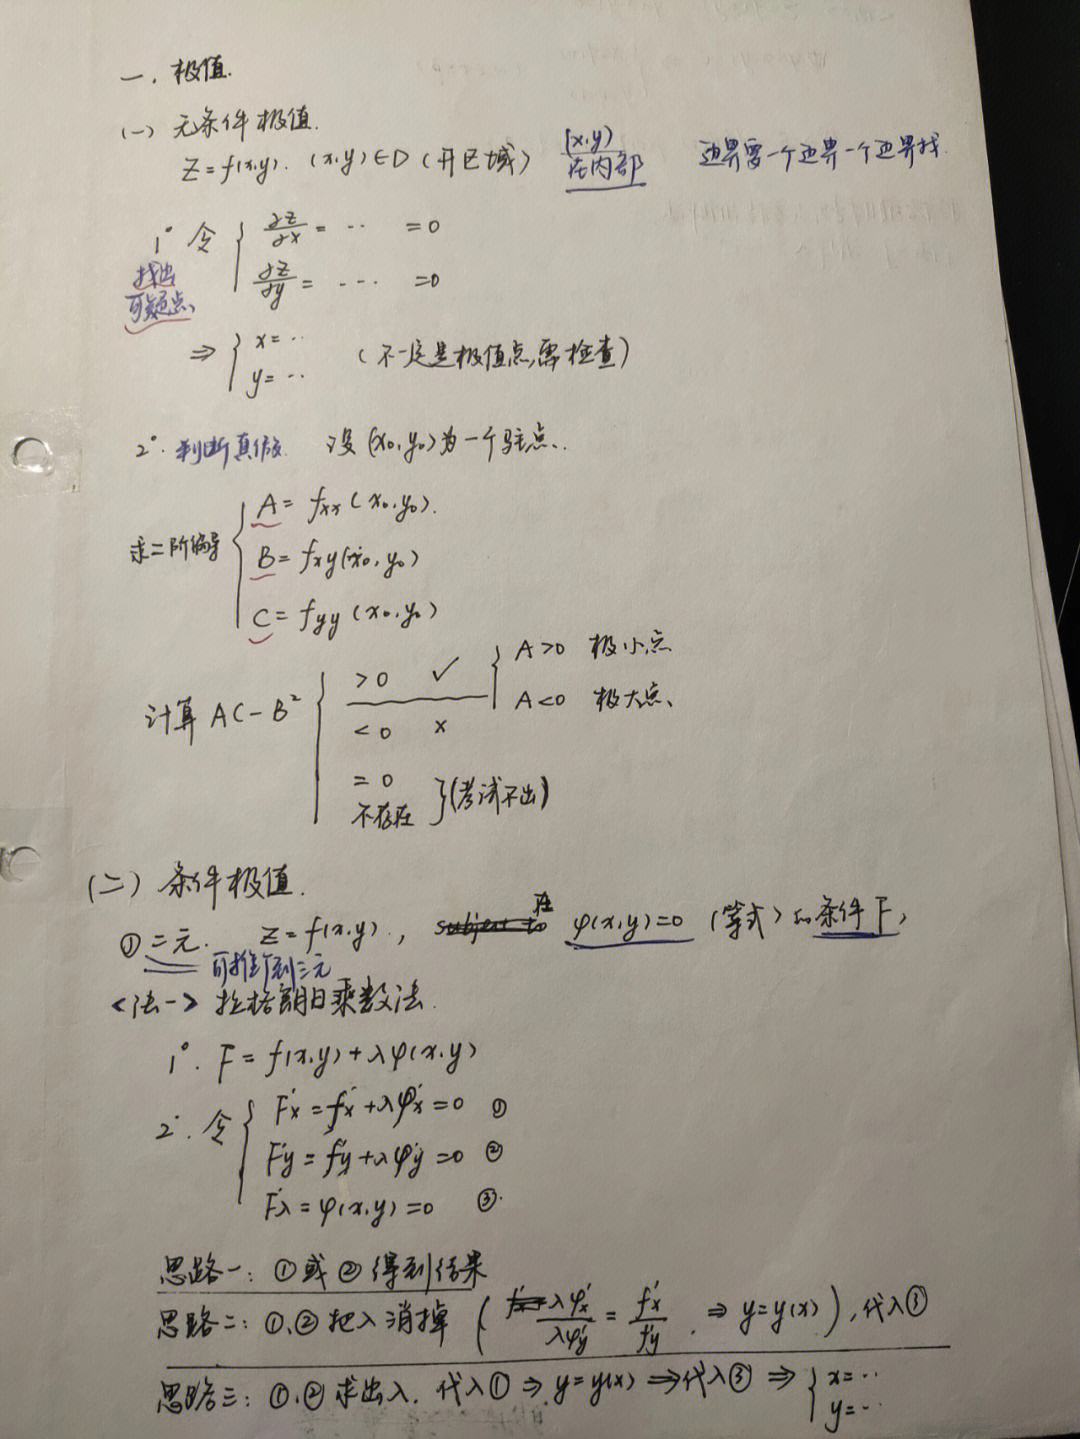 一. 极值.
(一) 无条件极值.
Z = f(x,y). (x,y)∈D (开区域) (x,y) 在内部 边界需一个边界一个边界找.
1° 令 { ∂z/∂x = ‥ = 0
∂z/∂y = --- = 0
找出
可疑点、
⇒ { x = ‥
y = ‥ (不一定是极值点,需检查)
2°. 判断真假. 设 (x₀,y₀) 为一个驻点、.
求二阶偏导 { A = fxx (x₀,y₀).
B = fxy (x₀,y₀)
C = fyy (x₀,y₀)
计算 AC - B² { >0 ✓ { A>0 极小点
A<0 极大点、
<0 ×
=0
不存在 } (考试不出)
(二) 条件极值.
① 二元. Z = f(x,y), 在 φ(x,y)=0 (等式) の条件下,
可推广到三元
<法一> 拉格朗日乘数法.
1°. F = f(x,y) + λφ(x,y)
2°. 令 { F'x = f'x + λφ'x = 0 ①
F'y = f'y + λφ'y = 0 ②
F'λ = φ(x,y) = 0 ③.
思路一: ①或②得到结果
思路二: ①、② 把λ消掉 ( λφ'x/λφ'y = f'x/f'y . ⇒ y=y(x) ), 代入③
思路三: ①、② 求出λ. 代入① ⇒ y=y(x) ⇒ 代入③ ⇒ { x = ‥
y = ‥